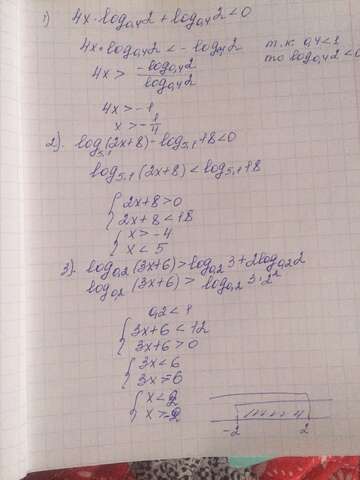 1) 4x·log₀,₄2 + log₀,₄2 < 0
4x·log₀,₄2 < -log₀,₄2 т.к. 0,4<1
4x > -log₀,₄2 / log₀,₄2 то log₀,₄2 < 0
4x > -1
x > -1/4
2). log₅,₁(2x+8) - log₅,₁18 < 0
log₅,₁(2x+8) < log₅,₁18
{ 2x+8 > 0
2x+8 < 18
{ x > -4
x < 5
3). log₀,₂(3x+6) > log₀,₂3 + 2log₀,₂2
log₀,₂(3x+6) > log₀,₂3·2²
0,2 < 1
{ 3x+6 < 12
3x+6 > 0
{ 3x < 6
{ x < 2
x > -2
-2 2